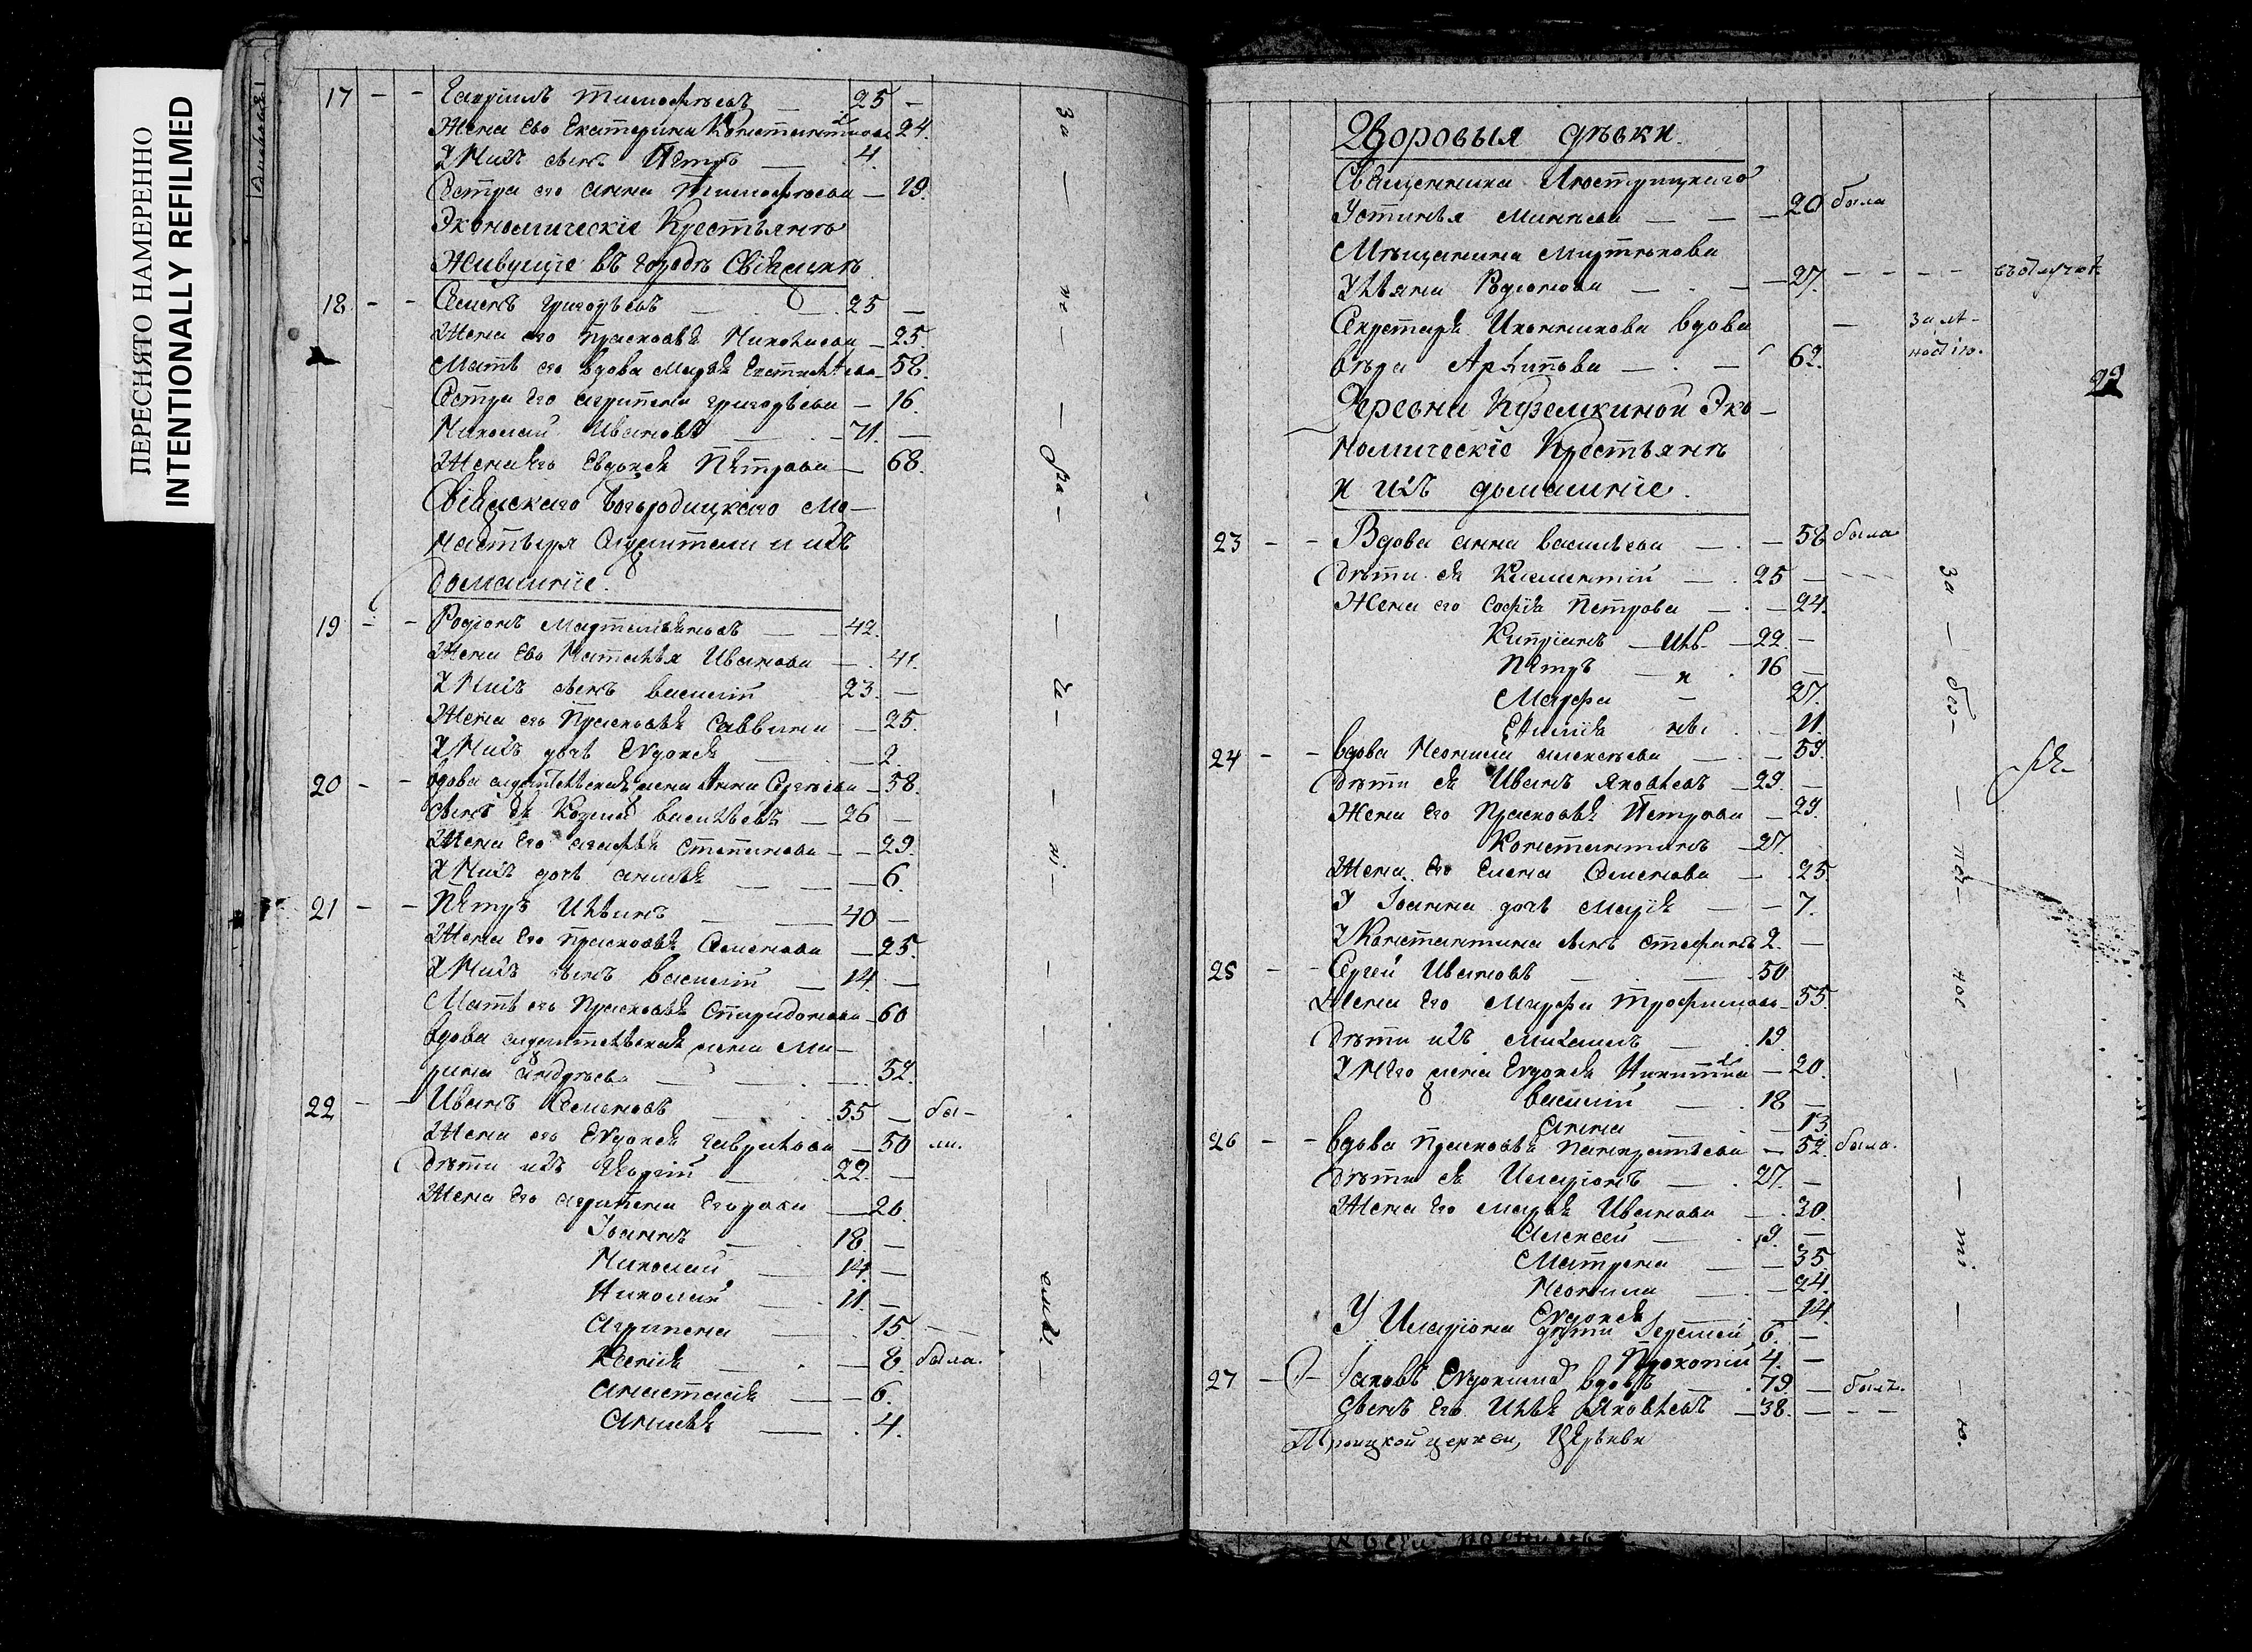 ПЕРЕСНЯТО НАМЕРЕННО
INTENTIONALLY REFILMED
17 - - Гавріилъ Тимофѣевъ — 25 -
Жена Его Екатерина Константинова 24.
У Нихъ сынъ Петръ — 4
Сестра его Анна Тимофѣева — 19.
Экономическіе Крестьянѣ
Живущіе въ городѣ Свіяжскѣ
18. - - Семенъ Григорьевъ 25 —
Жена его Прасковья Николаева — 25.
Мать его вдова Марья — 58.
Сестра Его Агрипена Григорьева — 16.
Николай Ивановъ — 71. —
Жена Его Евдокея Петрова — 68.
Свіяжскаго Богородицкаго Мо-
настыря Служители и ихъ
домашніе.
19 - - Родіонъ — 42.
Жена Ево Наталья Иванова — 41.
У Нихъ сынъ Василій 23. —
Жена его Прасковья Саввина — 25.
У Нихъ дочь Евдокея — 2.
20 - - Вдова служительская жена Анна Сергѣева — 58.
Сынъ Ея Козма Васильевъ — 26 —
Жена Его Агафья Степанова — 29.
У Нихъ дочь Анисья — 6.
21 - - Петръ Ильинъ — 40 —
Жена Его Прасковья Семенова — 25.
У Нихъ сынъ Василій — 14. —
Мать его Прасковья Спиридонова — 60
Вдова служительская жена Ма-
рина Андреева — 52.
22 - - Иванъ Семеновъ 55 — бы-
Жена его Евдокея Гаврилова — 50 ли.
Дѣти ихъ Георгій 22. —
Жена Его Агрипена Егорова — 20.
Іоаннъ 18. —
Николай — 14. —
Николай — 11. —
Агрипена — 15. —
Ксенія — 8. была.
Анастасія — 6.
Анисья — . 4.
За — не — ра — —
Дворовыя дѣвки.
Священника
Устинья Минеева — — 20 была
Мѣщанина
Ульяна Родіонова — 27. - - -
Секретаря Иконникова вдова — за лѣ-
Вѣра Архипова — 62. ностію.
22
Деревни Куземкиной Эко-
номическіе Крестьянѣ
и ихъ домашніе.
23 - - Вдова Анна Васильева — 58 была
Дѣти ея Климентій — 25 — - - -
Жена его Софья Петрова — 24.
Кипріанъ — 22. —
Петръ — 16 —
Марфа 27.
11.
24 - - Вдова Неонила Алексѣева — 59.
Дѣти ея Иванъ Яковлевъ — 29. —
Жена Его Прасковья Петрова — 29.
Константинъ — 27.
Жена Его Елена Семенова — 25.
У Іоанна дочь Марія — 7.
У Константина сынъ Стефанъ 2. —
25 - - Сергей Ивановъ 50
Жена Его Марфа Трофимова — 55.
Дѣти ихъ Михаилъ — 19.
У Него жена Евдокея Никитина — 20.
Василій — 18 —
Анна — 13
26 - - Вдова Прасковья Панкратьева — 52. была.
Дѣти ея Иларіонъ — 27. —
Жена Его Марья Иванова — 30.
Алексей — 9. —
Матрена — 35
Неонила — 24.
Евдокея 14.
У Иларіона дѣти 6. —
Прокопій 4. —
27 - - Іаковъ Евдокимов вдовъ 79. — былъ.
Сынъ Его Илья Яковлевъ — 38. — - -
Троицкой церкви,